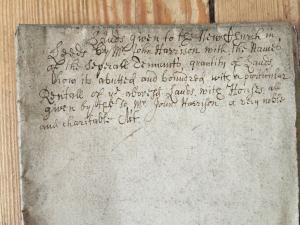 Lands given to the New Church in
Leeds by Mr John Harrison with the Names
of the severall Tennants, quantity of Lands,
how it is abutted and boundred, with a perticular
Rentall of ye Lands, with Houses, as
given by the sd Mr John Harrison, a very noble
and charitable Act.